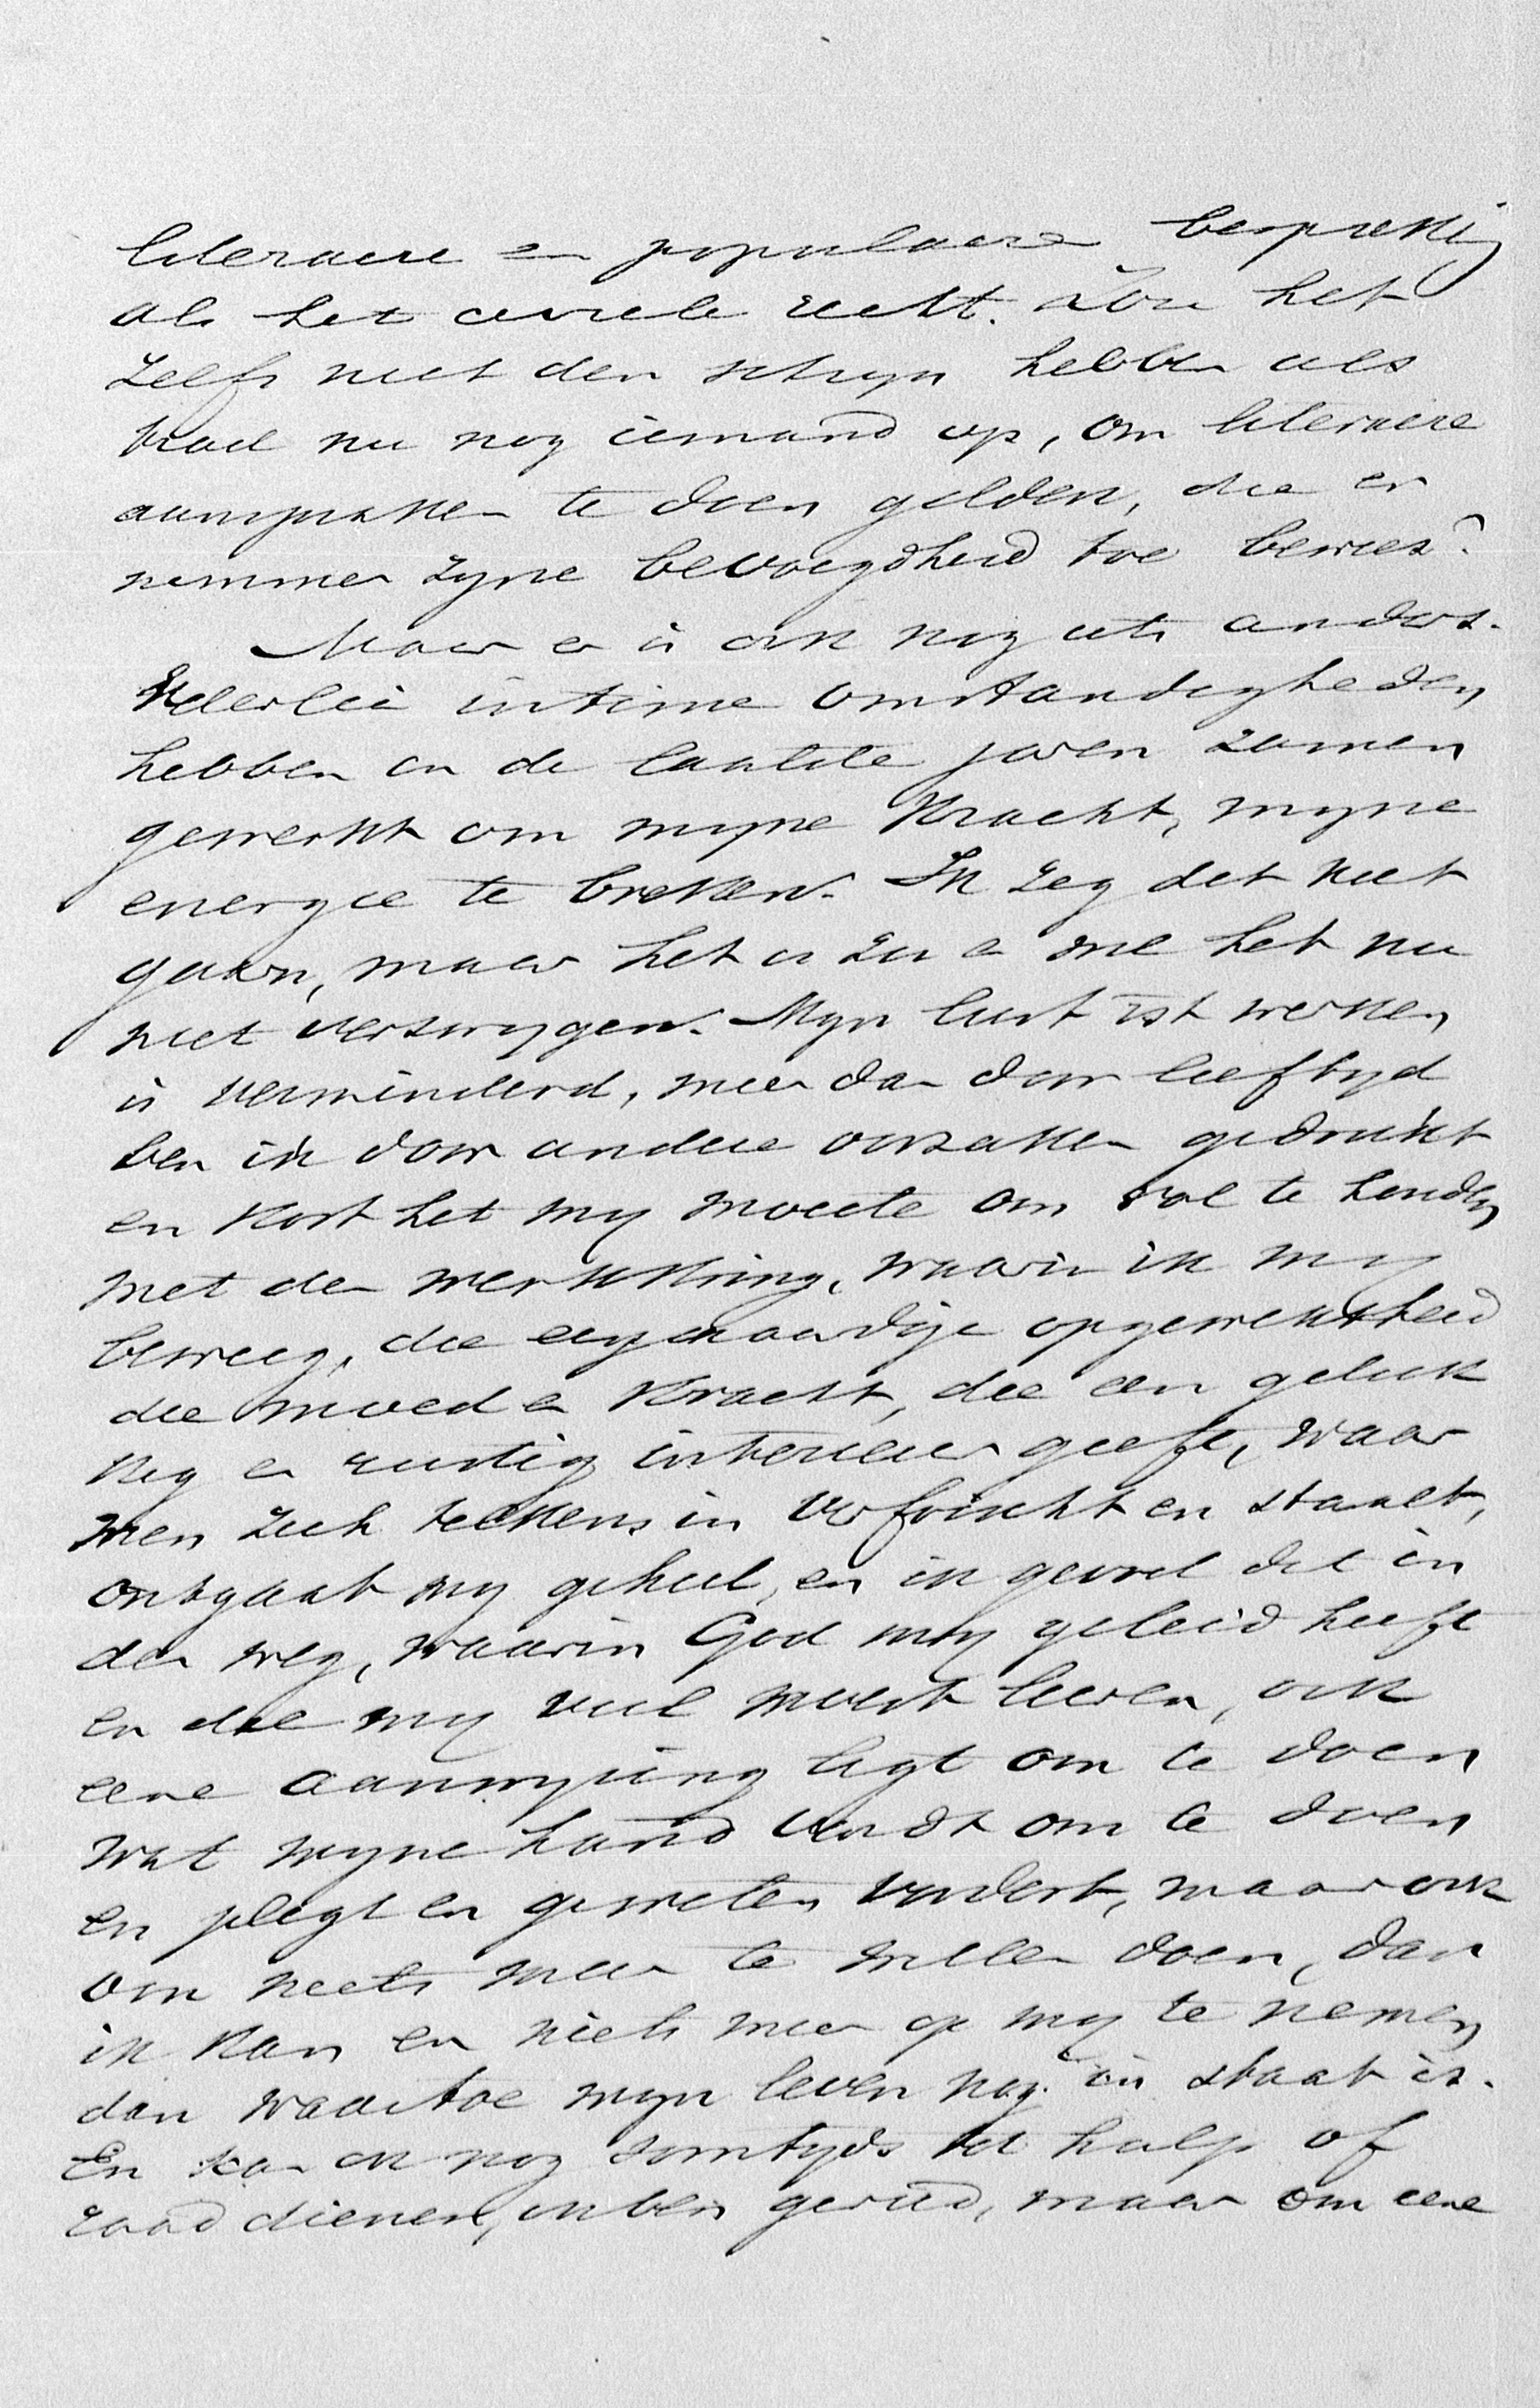 literaire en populaire bespreking
als het civiele recht. Zou het
zelfs niet den schyn hebben als
trad nu nog iemand op, om literaire
aanspraken te doen gelden, die er
nimmer zyne bevoegdheid toe bewees?
Maar er is ook nog iets anders.
Velerlei intime omstandigheden
hebben in de laatste jaren zamen
gewerkt om myne kracht, myne
energie te breken. Ik zeg dit niet
gaarn, maar het is zoo en me het nu
niet verzwygen. Myn lust tot werken
is verminderd, meer dan door leeftyd
ben ik door andere oorzaken gedrukt
en kost het my moeite om vol te houden
met den werkkring, waarin ik my
beweeg, die eigenaardige opgewektheid
die moed en kracht, die een geluk
kig en rustig interieur geeft, waar
men zich telkens in verfrischt en staalt,
ontgaat my geheel, en ik gevoel dat in
den weg, waarin God my geleid heeft
en die my veel moest leeren, ook
eene aanwyzing ligt om te doen
wat myne hand vindt om te doen
en pligt en geweten vordert, maar ook
om niets meer te willen doen, dan
ik kan en niets meer op my te nemen
dan waartoe myn leven nog in staat is.
En kan ik nog somtyds tot hulp of
raad dienen, ik ben gereed, maar om eene